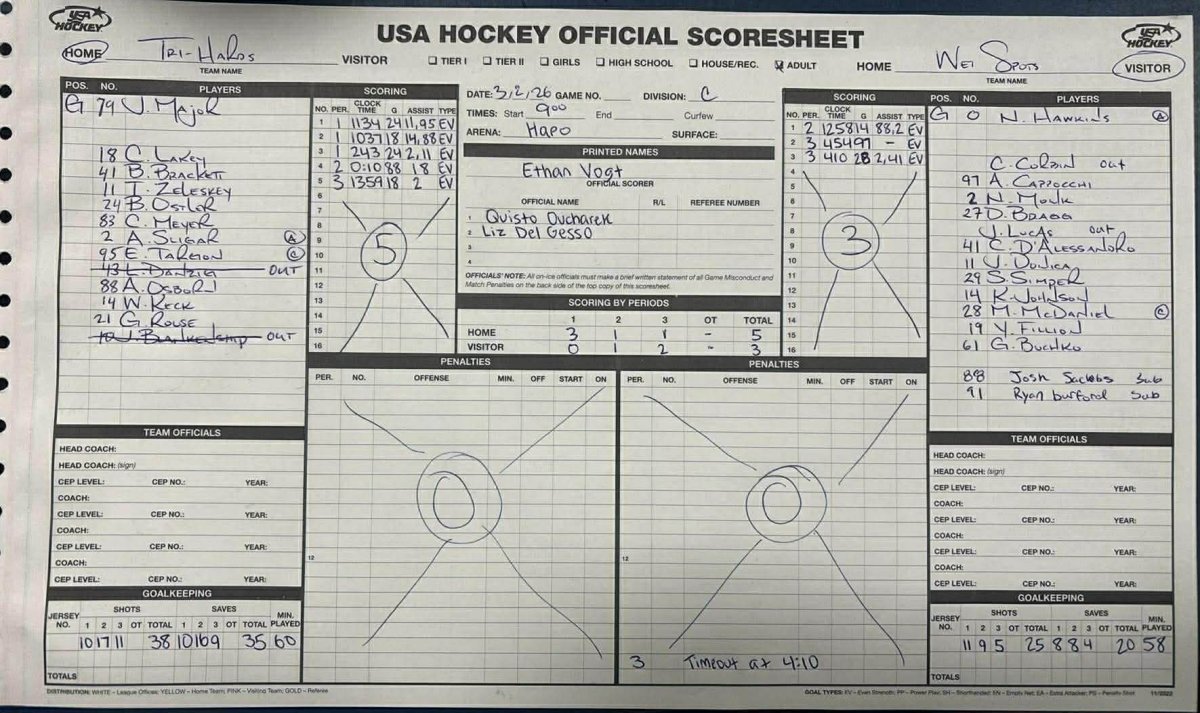 USA HOCKEY OFFICIAL SCORESHEET
USA HOCKEY
HOME TRI-HARDS VISITOR
TEAM NAME
☐ TIER I ☐ TIER II ☐ GIRLS ☐ HIGH SCHOOL ☐ HOUSE/REC. ☑ ADULT
HOME WET SPOTS VISITOR
TEAM NAME
USA HOCKEY
POS. NO. PLAYERS
G 79 J. MAJOR
18 C. LAKEY
41 B. BRACKETT
11 T. ZELESKEY
24 B. OSTLOR
83 C. MEYER
2 A. SLIGAR A
95 E. TARGON C
43 L. DANZIG OUT
88 A. OSBORN
14 W. KECK
21 G. ROUSE
10 J. BLANKENSHIP OUT
SCORING
NO. PER. CLOCK TIME G ASSIST TYPE
1 1 1134 24 11,95 EV
2 1 1037 18 14,88 EV
3 1 243 24 2,11 EV
4 2 0:10 88 18 EV
5 3 1359 18 2 EV
6
7
8
9
10
11
12
13
14
15
16
5
DATE: 3,2,26 GAME NO. DIVISION: C
TIMES: Start 900 End Curfew
ARENA: HAPO SURFACE:
PRINTED NAMES
Ethan Vogt
OFFICIAL SCORER
OFFICIAL NAME R/L REFEREE NUMBER
1 Quisto Ducharek
2 Liz Del Gesso
3
4
OFFICIALS' NOTE: All on-ice officials must make a brief written statement of all Game Misconduct and
Match Penalties on the back side of the top copy of this scoresheet.
SCORING BY PERIODS
1 2 3 OT TOTAL
HOME 3 1 1 - 5
VISITOR 0 1 2 - 3
SCORING
NO. PER. CLOCK TIME G ASSIST TYPE
1 2 1258 14 88,2 EV
2 3 454 97 - EV
3 3 410 28 2,41 EV
4
5
6
7
8
9
10
11
12
13
14
15
16
3
POS. NO. PLAYERS
G 0 N. HAWKINS A
C. CORBIN out
97 A. CAPPOCCHI
2 N. MONK
27 D. BRAGG
J. LUCAS out
41 C. D'ALESSANDRO
11 J. DONICA
29 S. SIMPER
14 K. JOHNSON
28 M. McDANIEL C
19 Y. FILLION
61 G. BUCHKO
88 Josh Sackbs sub
91 Ryan burford sub
PENALTIES
PER. NO. OFFENSE MIN. OFF START ON
0
12
PENALTIES
PER. NO. OFFENSE MIN. OFF START ON
0
12
3 Timeout at 4:10
TEAM OFFICIALS
HEAD COACH:
HEAD COACH: (sign)
CEP LEVEL: CEP NO.: YEAR:
COACH:
CEP LEVEL: CEP NO.: YEAR:
COACH:
CEP LEVEL: CEP NO.: YEAR:
COACH:
CEP LEVEL: CEP NO.: YEAR:
GOALKEEPING
JERSEY NO. SHOTS 1 2 3 OT TOTAL SAVES 1 2 3 OT TOTAL MIN. PLAYED
10 17 11 38 10 16 9 35 60
TOTALS
TEAM OFFICIALS
HEAD COACH:
HEAD COACH: (sign)
CEP LEVEL: CEP NO.: YEAR:
COACH:
CEP LEVEL: CEP NO.: YEAR:
COACH:
CEP LEVEL: CEP NO.: YEAR:
COACH:
CEP LEVEL: CEP NO.: YEAR:
GOALKEEPING
JERSEY NO. SHOTS 1 2 3 OT TOTAL SAVES 1 2 3 OT TOTAL MIN. PLAYED
11 9 5 25 8 8 4 20 58
TOTALS
DISTRIBUTION: WHITE – League Offices; YELLOW – Home Team; PINK – Visiting Team; GOLD – Referee
GOAL TYPES: EV – Even Strength; PP – Power Play; SH – Shorthanded; EN – Empty Net; EA – Extra Attacker; PS – Penalty Shot 11/2022